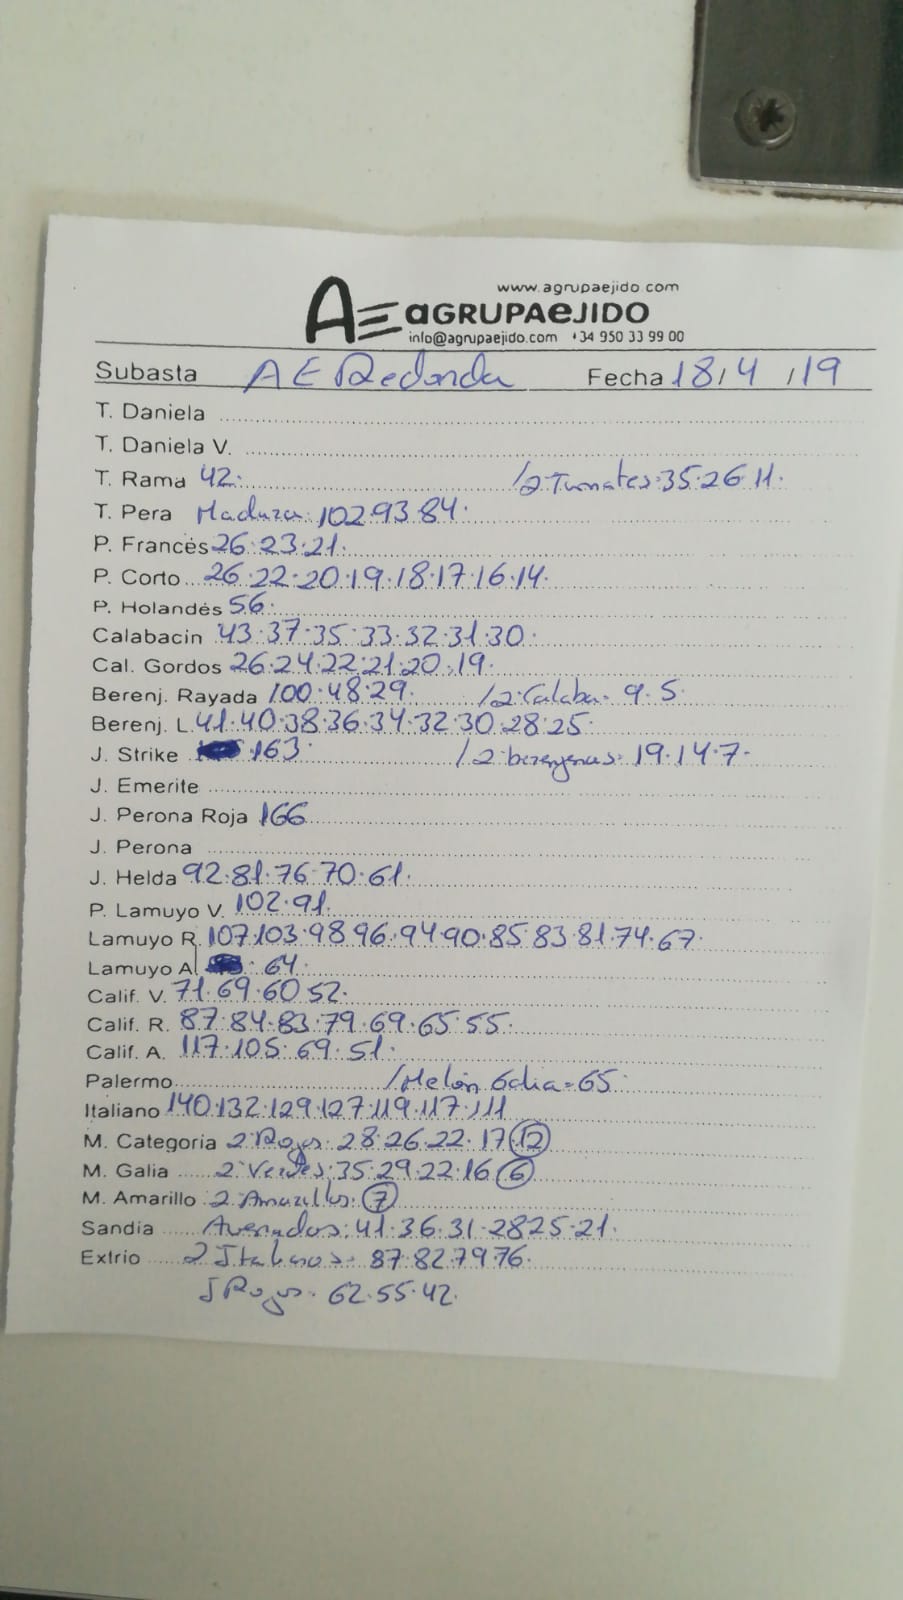 www.agrupaejido.com
AE aGRUPAeJIDO
info@agrupaejido.com +34 950 33 99 00
Subasta AE Redonda Fecha 18/4/19
T. Daniela
T. Daniela V.
T. Rama 42. /2:Tomates:35.26.11.
T. Pera Madura:102.93.84.
P. Francés 26.23.21.
P. Corto 26.22.20.19.18.17.16.14.
P. Holandés 56.
Calabacin 43.37.35.33.32.31.30.
Cal. Gordos 26.24.22.21.20.19.
Berenj. Rayada 100.48.29. /2:Calaba. 9.5.
Berenj. L. 41.40.38.36.34.32.30.28.25.
J. Strike 163. /2:berenjenas: 19.14.7.
J. Emerite
J. Perona Roja 166
J. Perona
J. Helda 92.81.76.70.61.
P. Lamuyo V. 102.91.
Lamuyo R. 107.103.98.96.94.90.85.83.81.74.67.
Lamuyo A. 64.
Calif. V. 71.69.60.52.
Calif. R. 87.84.83.79.69.65.55.
Calif. A. 117.105.69.51.
Palermo /Melón Gdia=65.
Italiano 140.132.129.127.119.117.111
M. Categoria 2:Rojos: 28.26.22.17 12
M. Galia 2:Verdes:35.29.22.16 6
M. Amarillo 2:Amarillos: 7
Sandía Averiados:41.36.31.28.25.21.
Extrío 2 Italianos: 87.82.79.76.
J Rojos. 62.55.42.